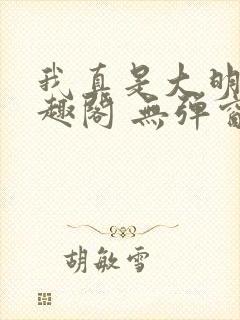 我真是大明
趣阁 無弹窗
胡敏雪